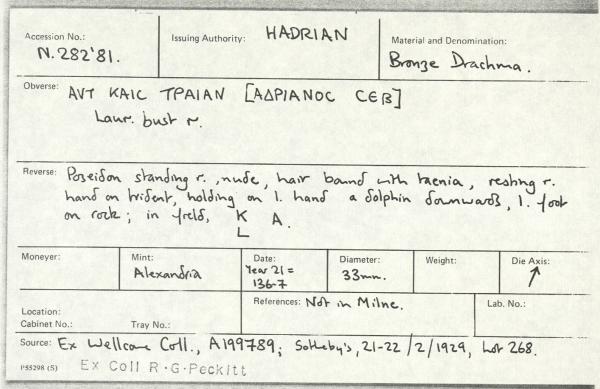 Accession No.:
N.282'81.
Issuing Authority: HADRIAN
Material and Denomination:
Bronze Drachma.
Obverse: ΑVΤ ΚΑΙC ΤΡΑΙΑΝ [ΑΔΡΙΑΝΟC CЄΒ]
Laur. bust r.
Reverse: Poseidon standing r., nude, hair bound with taenia, resting r.
hand on trident, holding on l. hand a dolphin downwards, l. foot
on rock; in field, K A.
L
Moneyer:
Mint:
Alexandria
Date:
Year 21 =
136-7
Diameter:
33mm.
Weight:
Die Axis:
↑
Location:
Cabinet No.:
Tray No.:
References: Not in Milne.
Lab. No.:
Source: Ex Wellcome Coll., A199789; Sotheby's, 21-22/2/1929, Lot 268.
P55298 (5) Ex Coll R.G.Peckitt